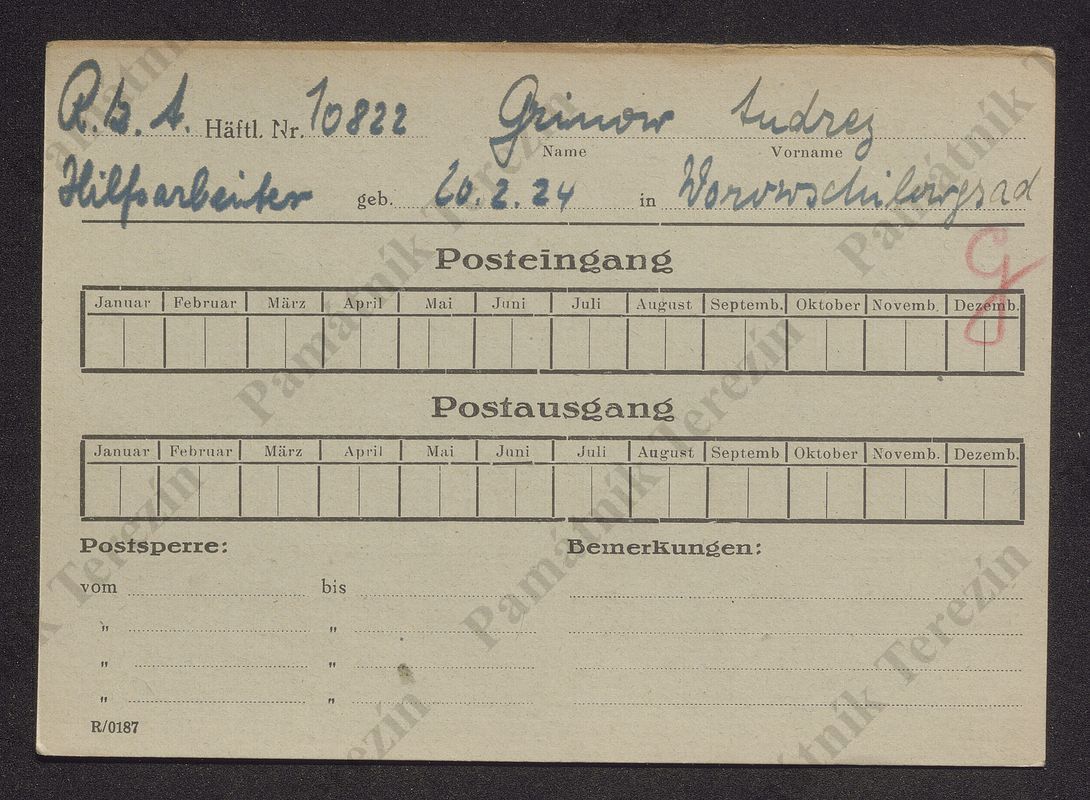 R.B.A. Häftl. Nr. 10822 Grinow Andrej
Name Vorname
Hilfsarbeiter geb. 20.2.24 in Worowschilowgrad
Posteingang
Januar Februar März April Mai Juni Juli August Septemb. Oktober Novemb. Dezemb.
Postausgang
Januar Februar März April Mai Juni Juli August Septemb Oktober Novemb. Dezemb.
Postsperre: Bemerkungen:
vom bis
" "
" "
" "
R/0187
Památník Terezín